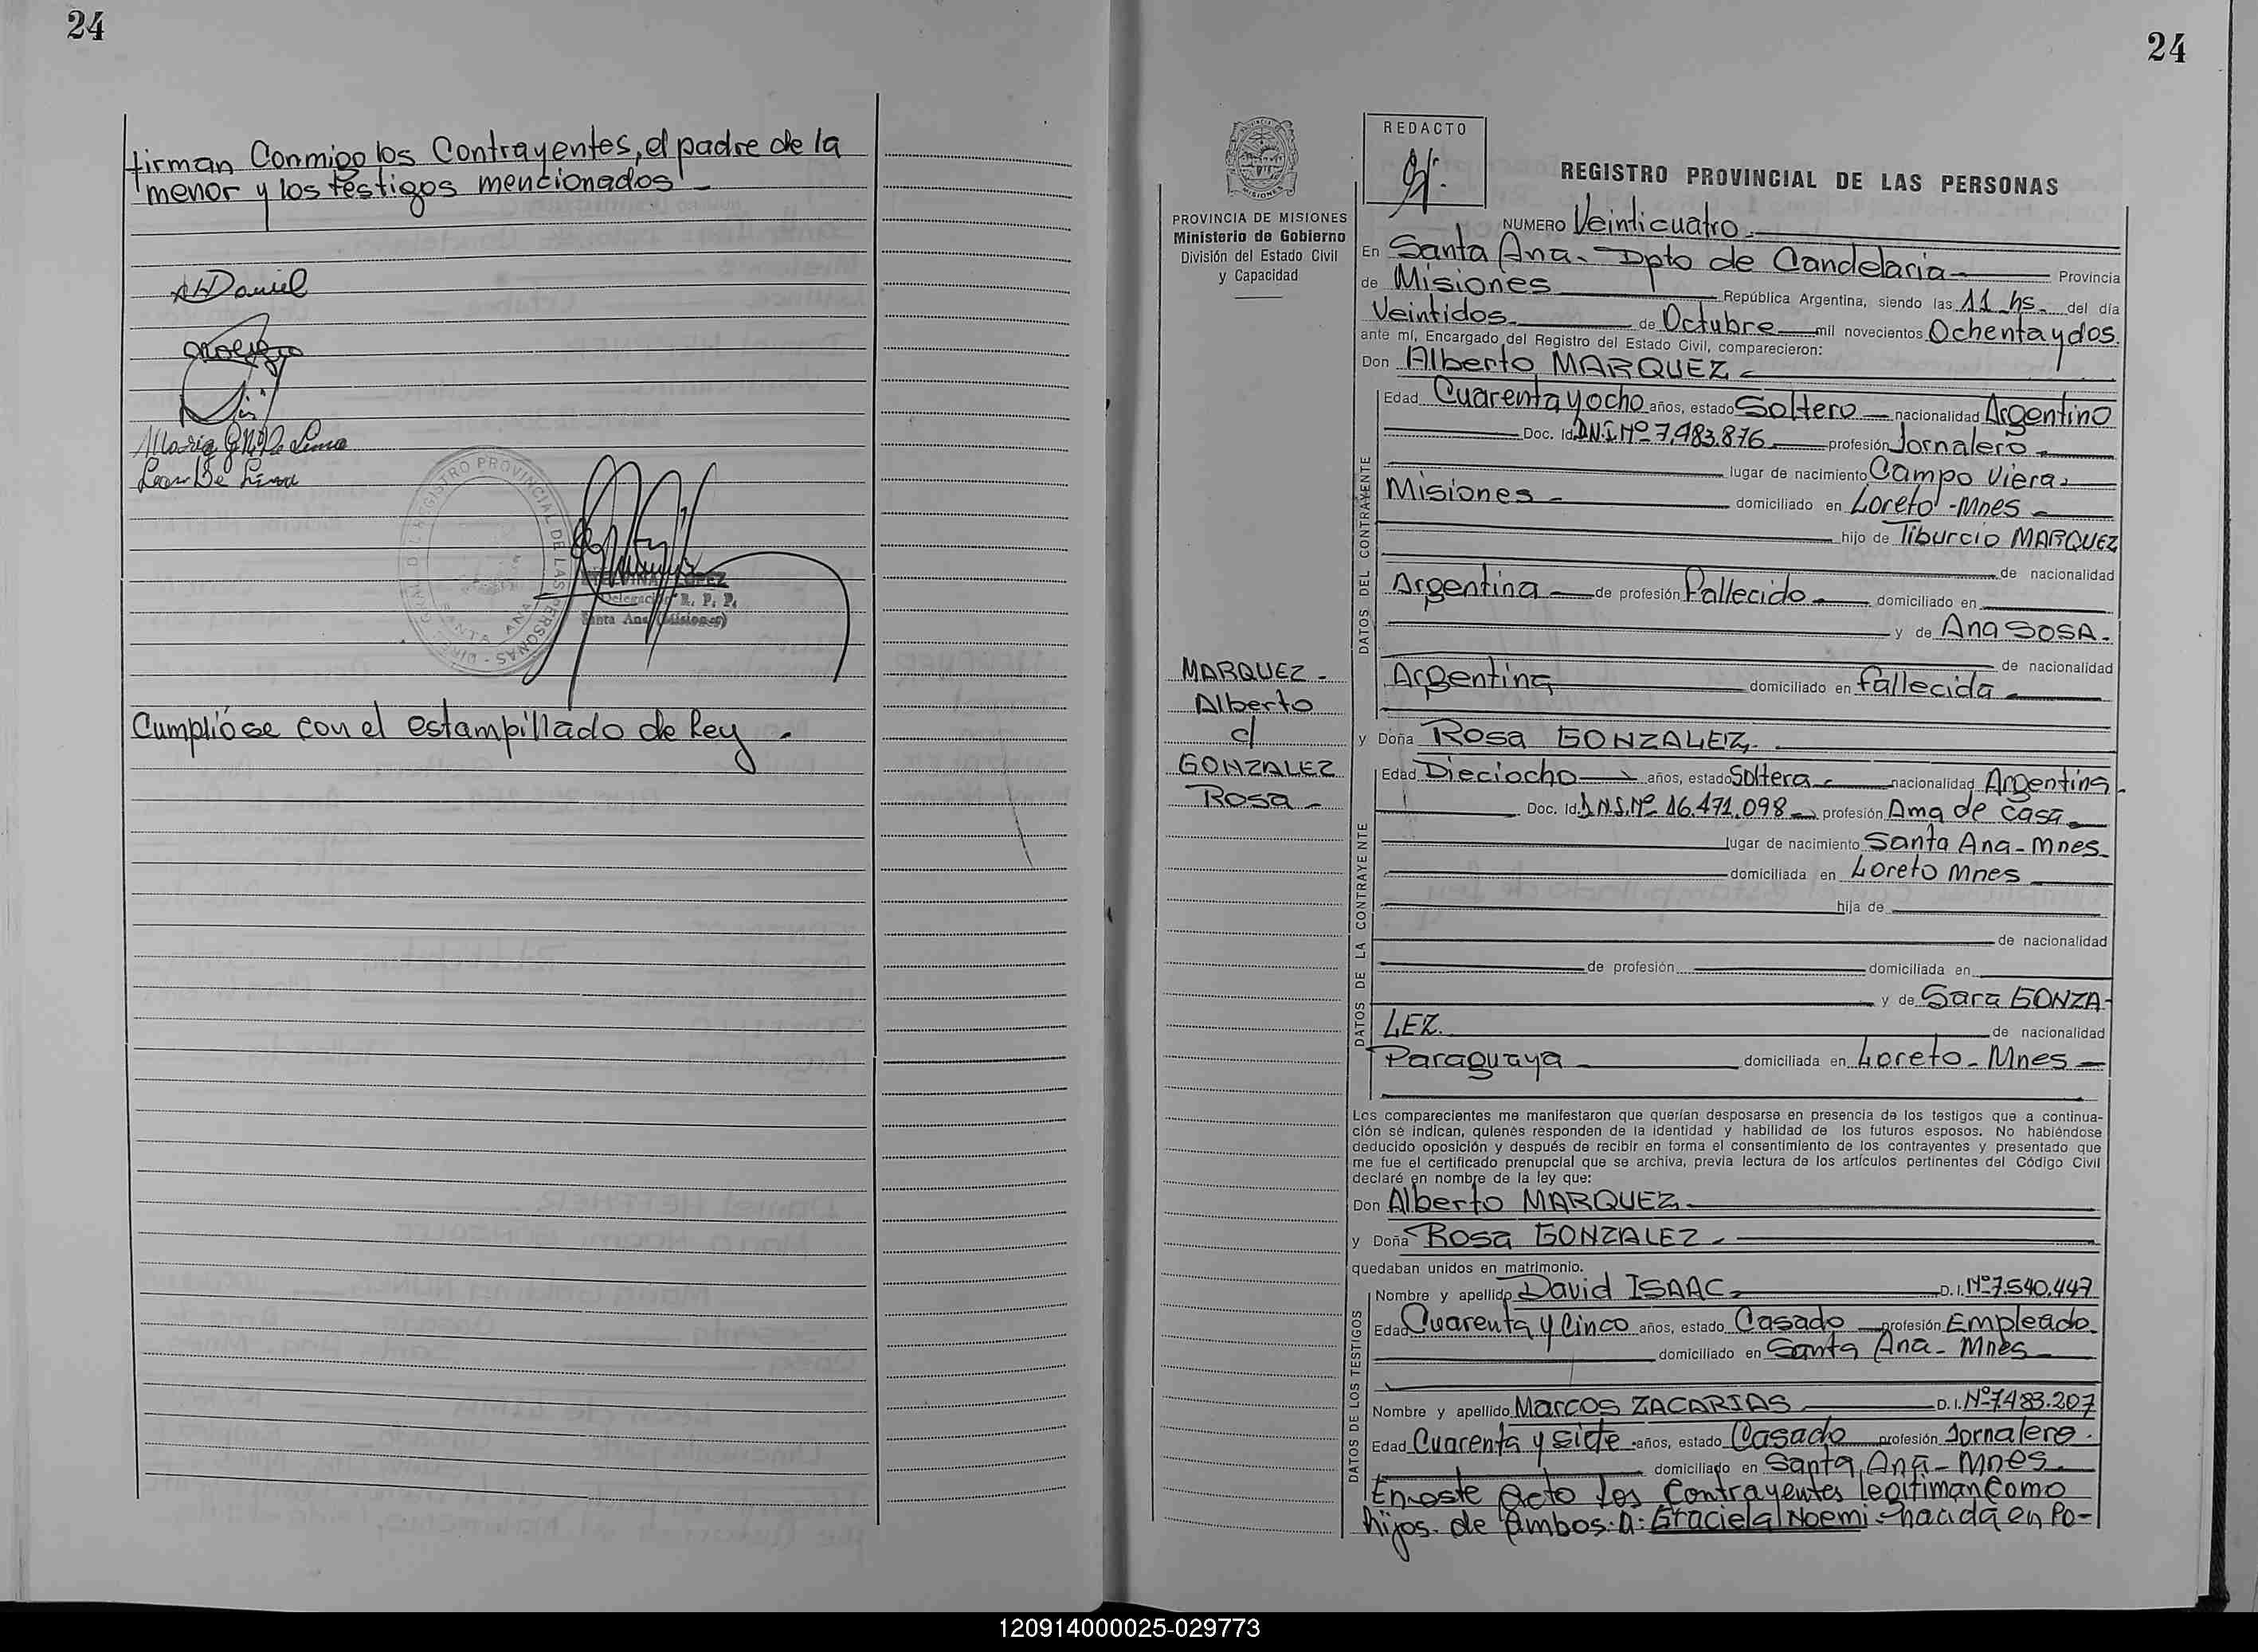 24
firman Conmigo los Contrayentes, el padre de la
menor y los testigos mencionados -
Daniel
Leon De Lima
REGISTRO PROVINCIAL DE LAS PERSONAS - SANTA ANA
LOPEZ
Delegación R. P. P.
Santa Ana (Misiones)
Cumplióse con el estampillado de Ley -
24
PROVINCIA DE MISIONES
Ministerio de Gobierno
División del Estado Civil
y Capacidad
REDACTO
REGISTRO PROVINCIAL DE LAS PERSONAS
NUMERO Veinticuatro.-
En Santa Ana- Dpto de Candelaria Provincia
de Misiones República Argentina, siendo las 11 hs. del día
Veintidos de Octubre mil novecientos Ochenta y dos.
ante mí, Encargado del Registro del Estado Civil, comparecieron:
Don Alberto MARQUEZ -
DATOS DEL CONTRAYENTE
Edad Cuarenta y ocho años, estado Soltero nacionalidad Argentino
Doc. Id. D.N.I. Nº 7.483.876 profesión Jornalero
lugar de nacimiento Campo Viera-
Misiones - domiciliado en Loreto - Mnes -
hijo de Tiburcio MARQUEZ
de nacionalidad
Argentina de profesión Fallecido domiciliado en
y de Ana SOSA.
de nacionalidad
Argentina domiciliado en fallecida
MARQUEZ -
Alberto
c/
GONZALEZ
Rosa -
y Doña Rosa GONZALEZ.
DATOS DE LA CONTRAYENTE
Edad Dieciocho años, estado Soltera nacionalidad Argentina
Doc. Id. D.N.I. Nº 16.471.098 profesión Ama de casa
lugar de nacimiento Santa Ana - Mnes.
domiciliada en Loreto Mnes
hija de
de nacionalidad
de profesión domiciliada en
y de Sara GONZA-
LEZ. de nacionalidad
Paraguaya domiciliada en Loreto - Mnes -
Los comparecientes me manifestaron que querían desposarse en presencia de los testigos que a continua-
ción se indican, quienes responden de la identidad y habilidad de los futuros esposos. No habiéndose
deducido oposición y después de recibir en forma el consentimiento de los contrayentes y presentado que
me fue el certificado prenupcial que se archiva, previa lectura de los artículos pertinentes del Código Civil
declaré en nombre de la ley que:
Don Alberto MARQUEZ
y Doña Rosa GONZALEZ -
quedaban unidos en matrimonio.
DATOS DE LOS TESTIGOS
Nombre y apellido David ISAAC D. I. Nº 7.540.447
Edad Cuarenta y Cinco años, estado Casado profesión Empleado
domiciliado en Santa Ana - Mnes
Nombre y apellido Marcos ZACARIAS D. I. Nº 7.483.207
Edad Cuarenta y siete años, estado Casado profesión Jornalero.
domiciliado en Santa Ana - Mnes
En este acto los Contrayentes legitiman como
hijos de ambos a: Graciela Noemi - nacida en Po-
120914000025-029773